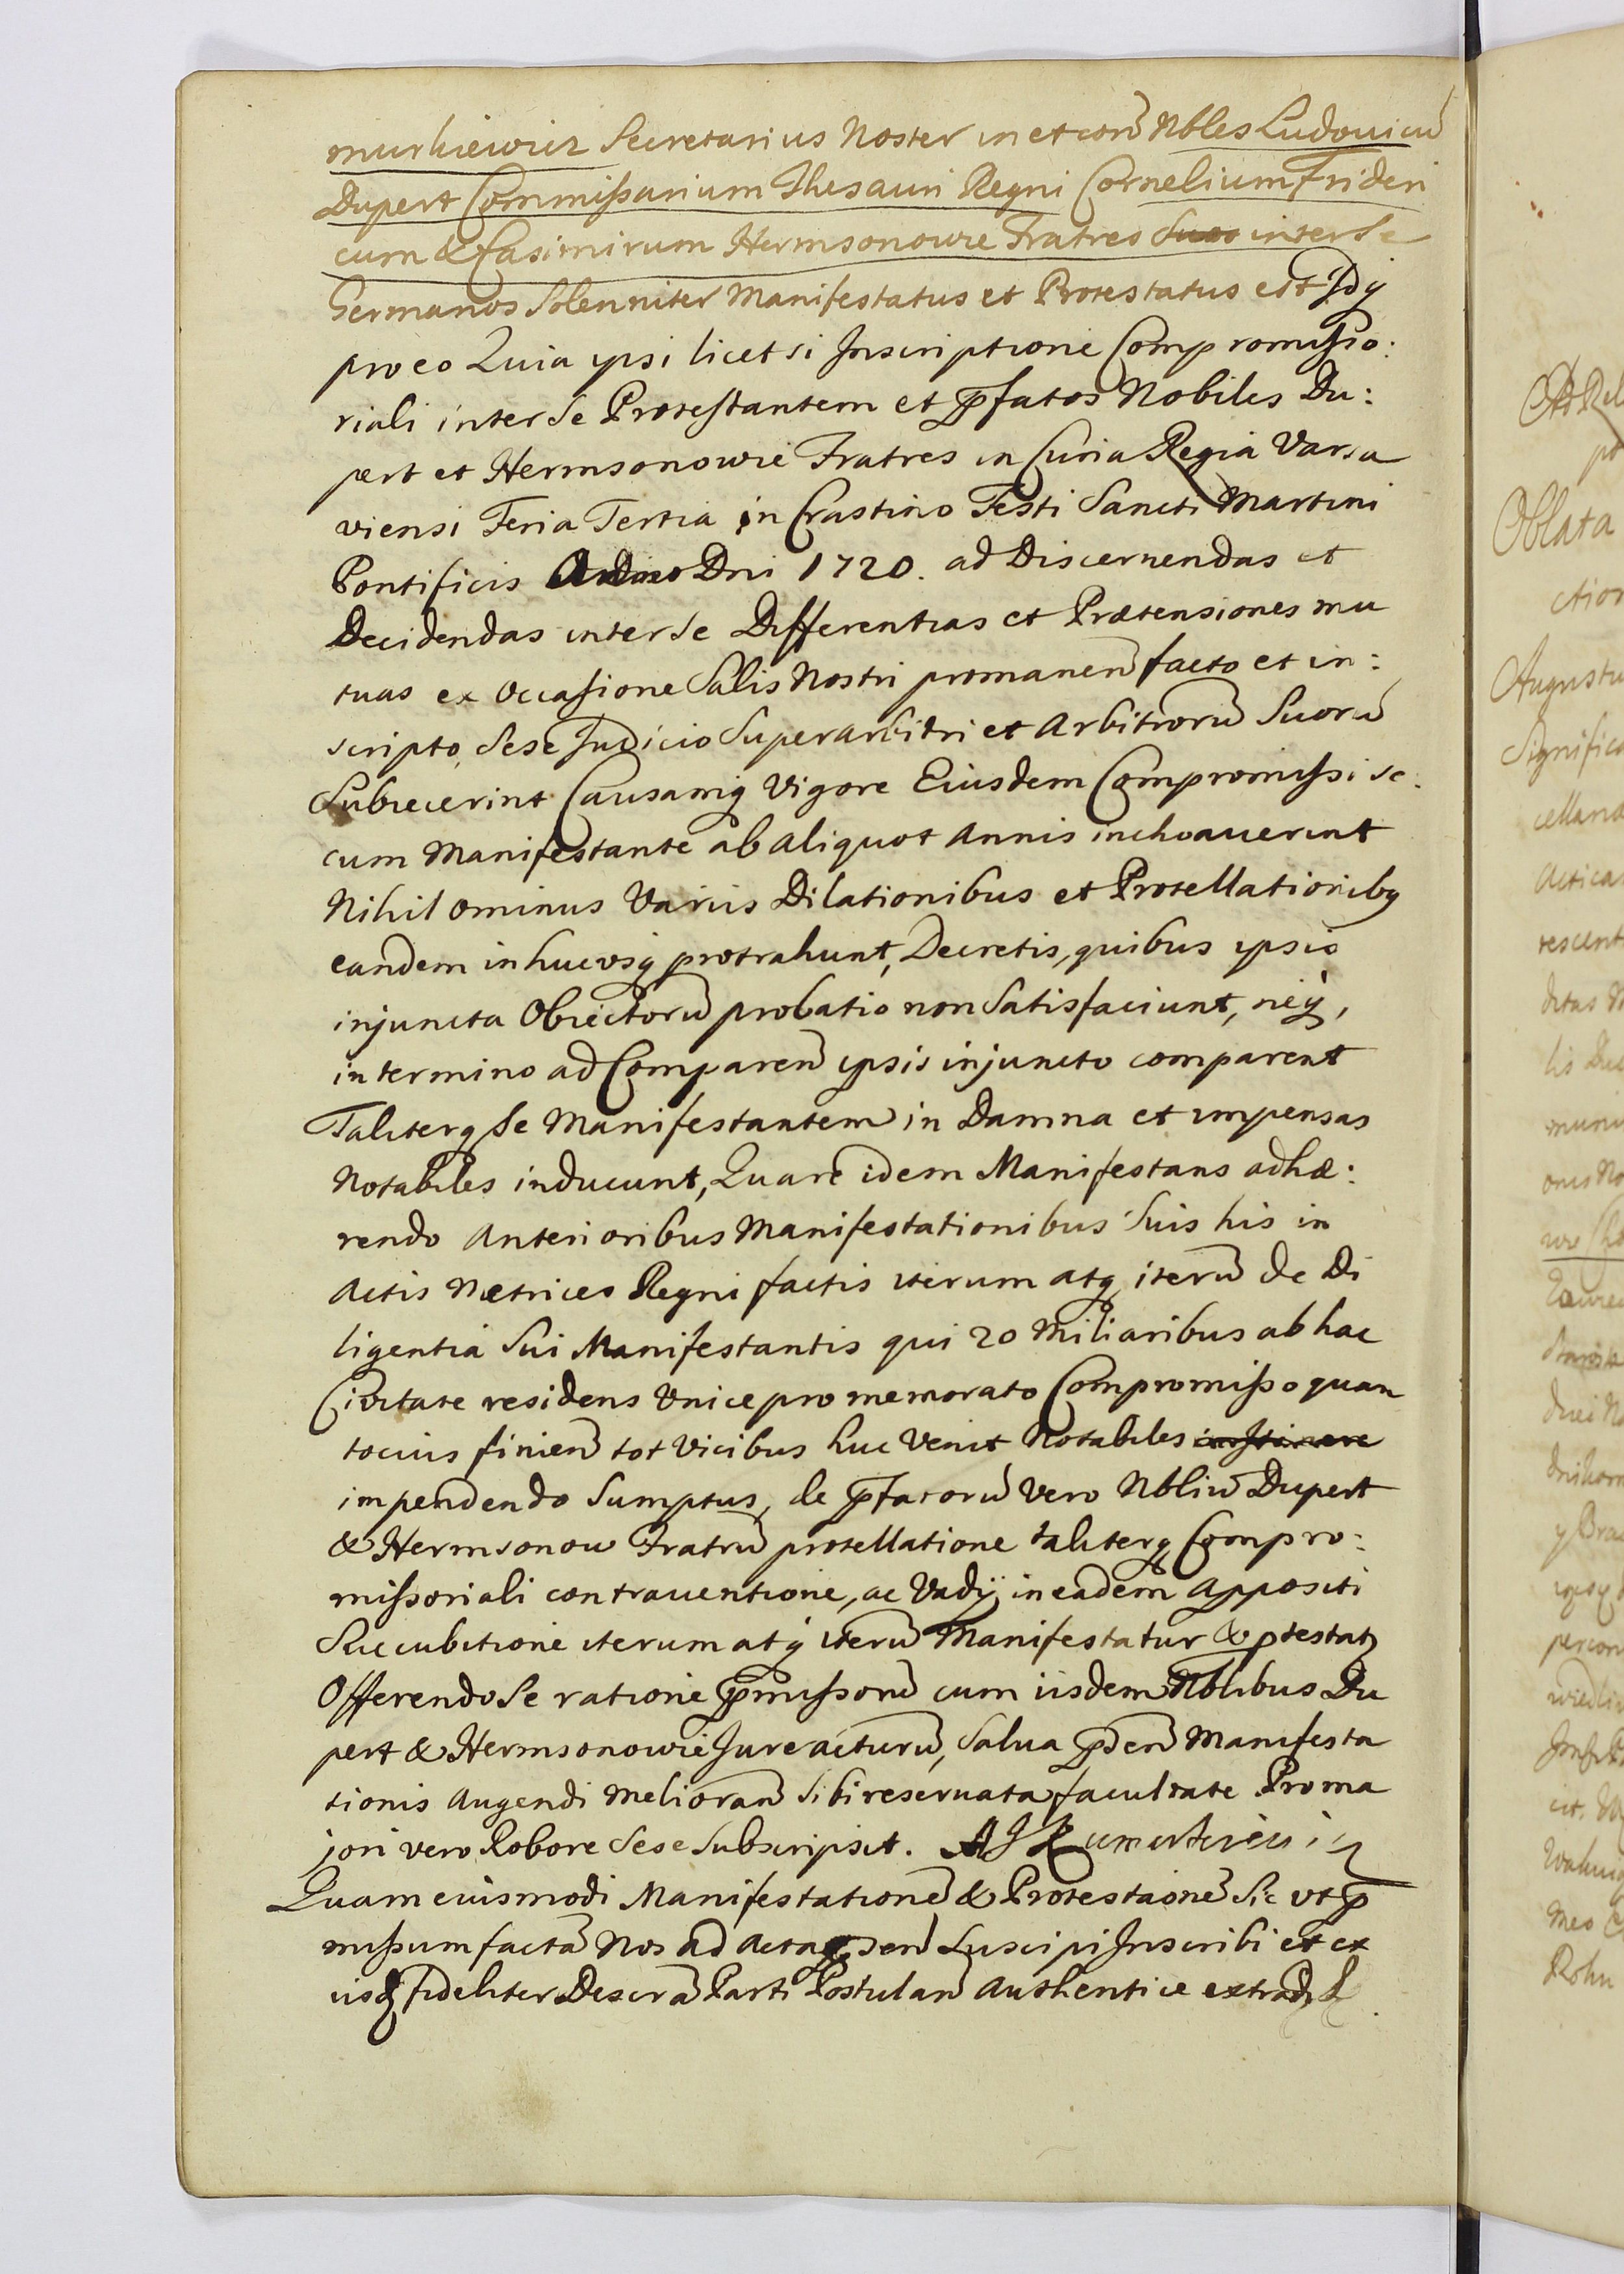 murkiewicz Secretarius Noster in et con͂ Nbles Ludouicu͂
Dupert Commissarium Thesauri Regni Cornelium Frideri
cum & Casimirum Hermsonowie Fratres Suos inter Se
Germanos Solenniter Manifestatus et Protestatus est Idq
pro eo Quia ypsi licet si Inscriptione Compromissio:
riali inter Se Protestantem et p͂fatos Nobiles Du:
pert et Hermsonowie Fratres in Curia Regia Varsa
viensi Feria Tertia in Crastino Festi Sancti Martini
Pontificis Dni 1720. ad Discernendas et
Decidendas inter Se Differentias et Prætensiones mu
tuas ex Occasione Salis Nostri promanen͂ facto et in:
scripto, Sese Judicio Superarbitri et Arbitroru͂ Suoru͂
Subiecerint Causamq Vigore Eiusdem Compromissi se:
cum Manifestante ab aliquot Annis inchoauerint
Nihil ominus Varus Dilationibus et Protellationibq
eandem in hucusq protrahunt, Decretis, quibus ypsis
injuncta Obiectoru͂ probatio non Satisfaciunt, neq,
in termino ad Comparen͂ ypsis injuncto comparent
Taliterq Se Manifestantem in Damna et impensas
Notabiles inducunt, Quare idem Manifestans adhæ:
rendo Anterioribus Manifestationibus Suis his in
Actis Metrices Regni factis iterum atq iteru͂ de Di
ligentia Sui Manifestantis qui 20 Miliaribus ab hac
Civitate residens Unice pro memorato Compromisso quan
tocius finien͂ tot Vicibus huc Venit Notabiles
impendendo Sumptus, de p͂fatoru͂ vero Nbliu͂ Dupert
& Hermsonow Fratru͂ protellatione taliterq Compro:
missoriali contrauentione, ac Vadij in eadem appositi
Succubitione iterum atq iteru͂ Manifestatur & ptestatz
Offerendo Se ratione p͂missoru͂ cum iisdem Nblibus Du
pert & Hermsonowie Jure acturu͂, Salua p͂sen͂ Manifesta
tionis Augendi melioran͂ Sibi reseruata facultate Pro ma
jori vero Robore Sese Subscripsit. AJ
Quam eiusmodi Manifestatione͂ & Protestaione͂ Sic vt p͂
missum facta͂ Nos ad Acta p͂sen͂ Suscipi Inscribi et ex
iisd fideliter Descra͂ Parti Postulan͂ Authentice extradi